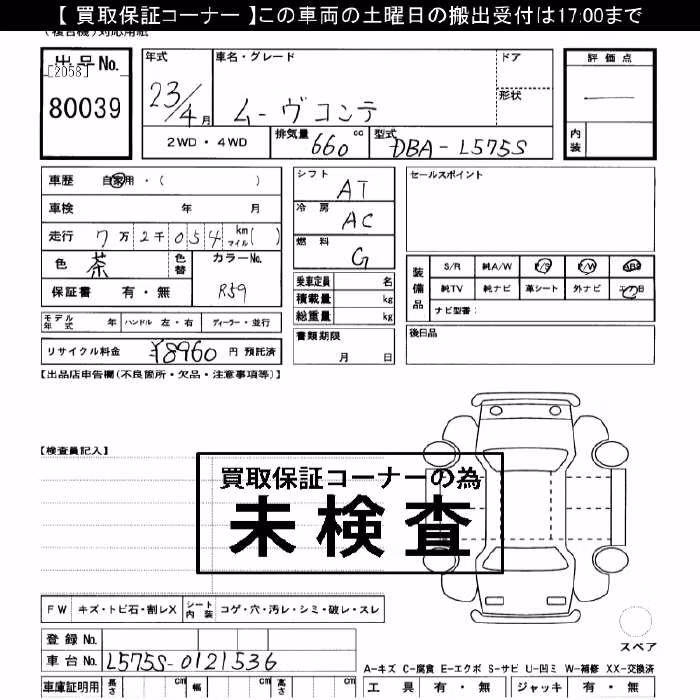 【 買取保証コーナー 】この車両の土曜日の搬出受付は17:00まで
出品No.
[2058]
80039
年式
23/4月
車名・グレード
ムーヴコンテ
ドア
形状
評価点
内装
2WD・4WD
排気量 660 cc
型式 DBA-L575S
車歴 自家用・( )
車検 年 月
走行 7万2千054 km マイル( )
色 茶
色替
カラーNo. R59
保証書 有・無
シフト AT
冷房 AC
燃料 G
乗車定員 名
積載量 kg
総重量 kg
書類期限
月 日
セールスポイント
装備品
S/R 純A/W P/S P/W ABS
純TV 純ナビ 革シート 外ナビ エアB
ナビ型番:
後日品
モデル年式 年 ハンドル 左・右 ディーラー・並行
リサイクル料金 ¥8960 円 預託済
【出品店申告欄(不良箇所・欠品・注意事項等)】
【検査員記入】
買取保証コーナーの為
未検査
FW キズ・トビ石・割レX シート内装 コゲ・穴・汚レ・シミ・破レ・スレ
登録No.
車台No. L575S-0121536
車庫証明用 長さ cm 幅 cm 高さ cm
スペア
A-キズ C-腐食 E-エクボ S-サビ U-凹ミ W-補修 XX-交換済
工具 有・無 ジャッキ 有・無